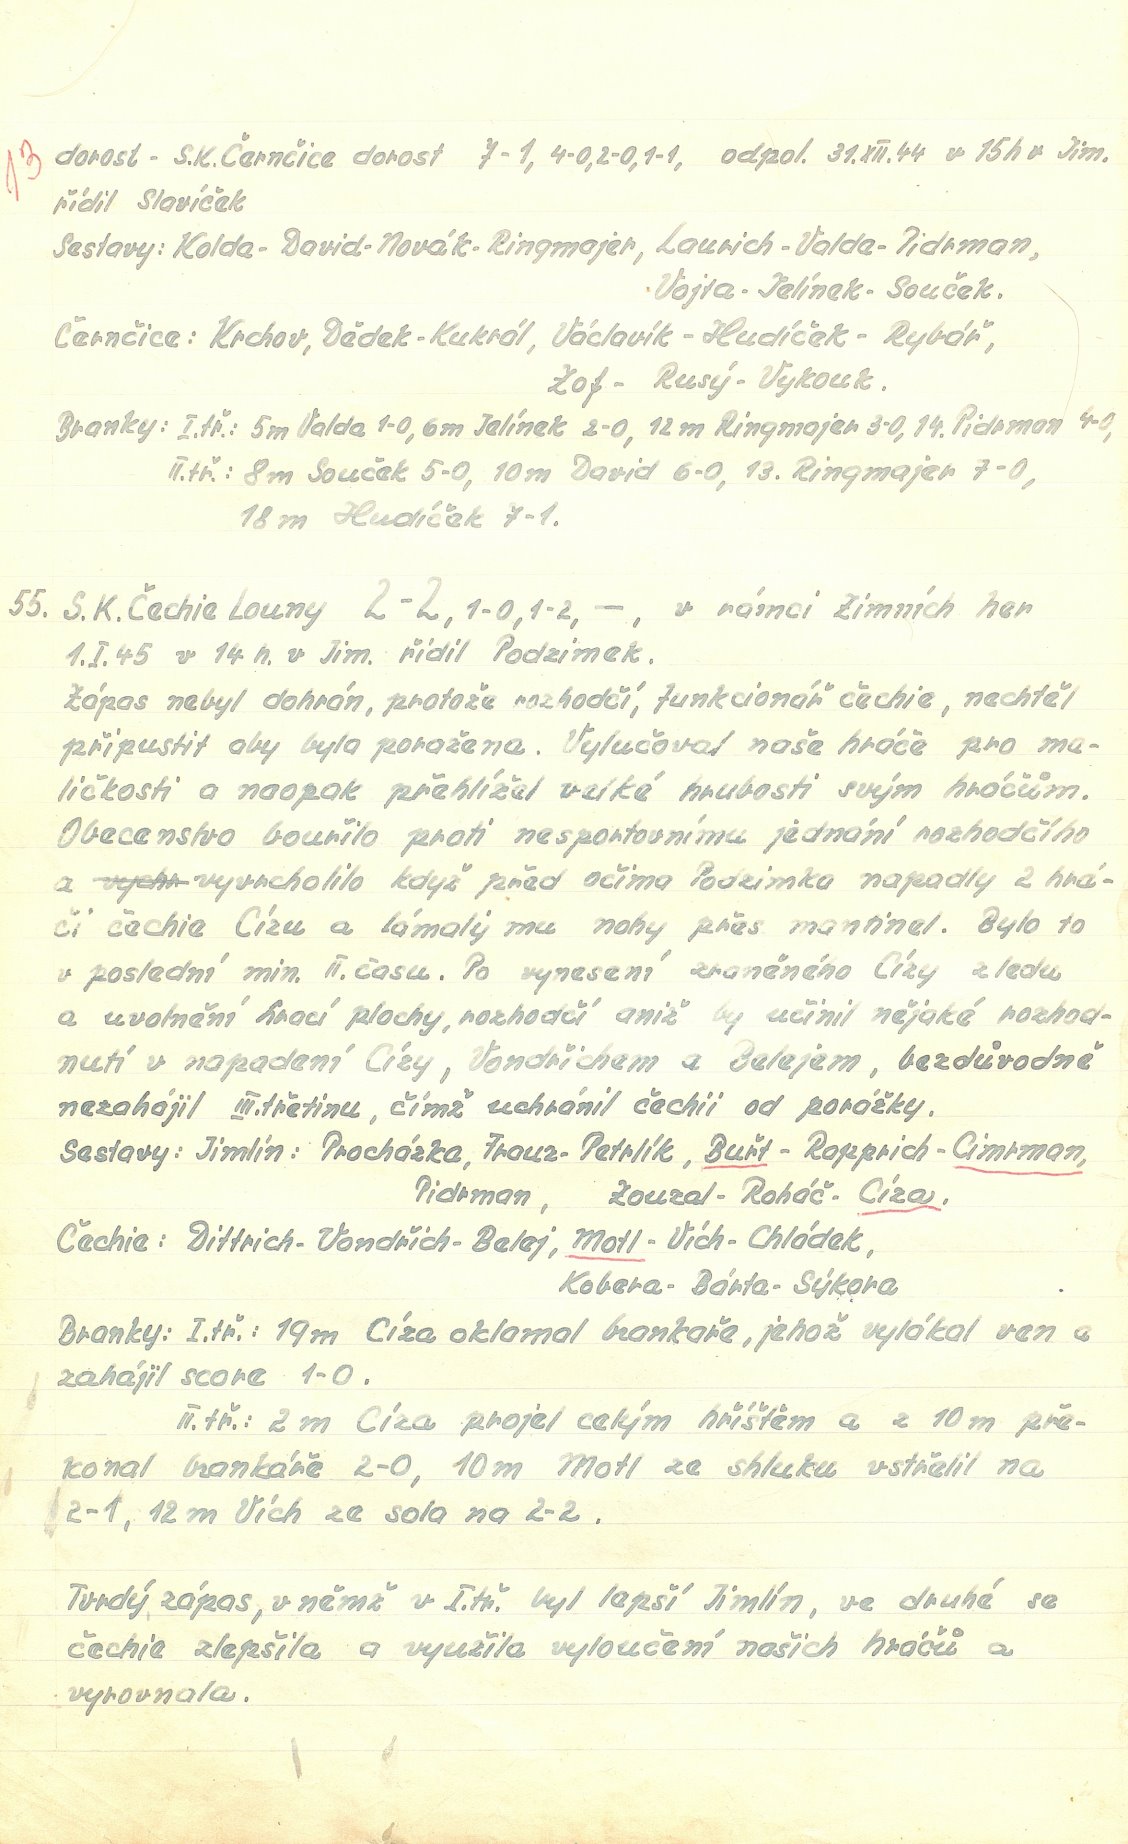 13
dorost - S.K. Černčice dorost 7-1, 4-0, 2-0, 1-1, odpol. 31.XII.44 v 15h v Jim.
řídil Slavíček
Sestavy: Kolda - David - Novák - Ringmajer, Laurich - Valda - Pidrman,
Vojta - Jelínek - Souček.
Černčice: Krchov, Dědek - Kukrál, Václavík - Hudíček - Rybář,
Žof - Rusý - Vykouk.
Branky: I.tř.: 5m Valda 1-0, 6m Jelínek 2-0, 12m Ringmajer 3-0, 14. Pidrman 4-0,
II.tř.: 8m Souček 5-0, 10m David 6-0, 13. Ringmajer 7-0,
18m Hudíček 7-1.
55. S.K. Čechie Louny 2-2, 1-0, 1-2, —, v rámci Zimních her
1.I.45 v 14 h. v Jim. řídil Podzimek.
Zápas nebyl dohrán, protože rozhodčí, funkcionář čechie, nechtěl
připustit aby byla poražena. Vylučoval naše hráče pro ma-
ličkosti a naopak přehlížel velké hrubosti svým hráčům.
Obecenstvo bouřilo proti nesportovnímu jednání rozhodčího
a vychr vyvrcholilo když před očima Podzimka napadly 2 hrá-
či čechie Cízu a lámalý mu nohy přes mantinel. Bylo to
v poslední min. II. času. Po vynesení zraněného Cízy z ledu
a uvolnění hrací plochy, rozhodčí aniž by učinil nějaké rozhod-
nutí v napadení Cízy, Vondřichem a Belejem, bezdůvodně
nezahájil III. třetinu, čímž uchránil čechii od porážky.
Sestavy: Jimlín: Procházka, Frouz - Petrlík, Buřt - Ropprich - Cimrman,
Pidrman, Zouzal - Roháč - Cíza.
Čechie: Dittrich - Vondřich - Belej, Motl - Vích - Chládek,
Kobera - Bárta - Sýkora
Branky: I.tř.: 19m Cíza oklamal brankaře, jehož vylákal ven a
zahájil score 1-0.
II.tř.: 2m Cíza projel celým hřištěm a z 10m pře-
konal brankáře 2-0, 10m Motl ze shluku vstřelil na
2-1, 12m Vích ze sola na 2-2.
Tvrdý zápas, v němž v I.tř. byl lepší Jimlín, ve druhé se
čechie zlepšila a využila vyloučení našich hráčů a
vyrovnala.